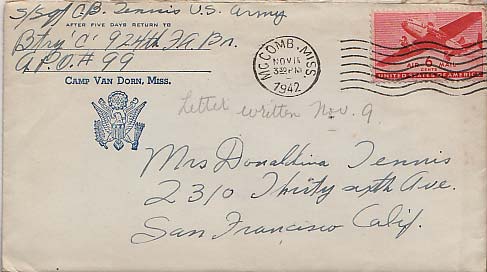 S/Sgt C.B. Tennis U.S. Army
AFTER FIVE DAYS RETURN TO
Btry "C" 924th F.A. Bn.
A.P.O. # 99
CAMP VAN DORN, MISS.
MCCOMB, MISS.
NOV 11
3 PM
1942
AIR 6 MAIL
CENTS
UNITED STATES OF AMERICA
Letter written Nov. 9
Mrs Donaldina Tennis
2310 Thirty sixth Ave.
San Francisco Calif.